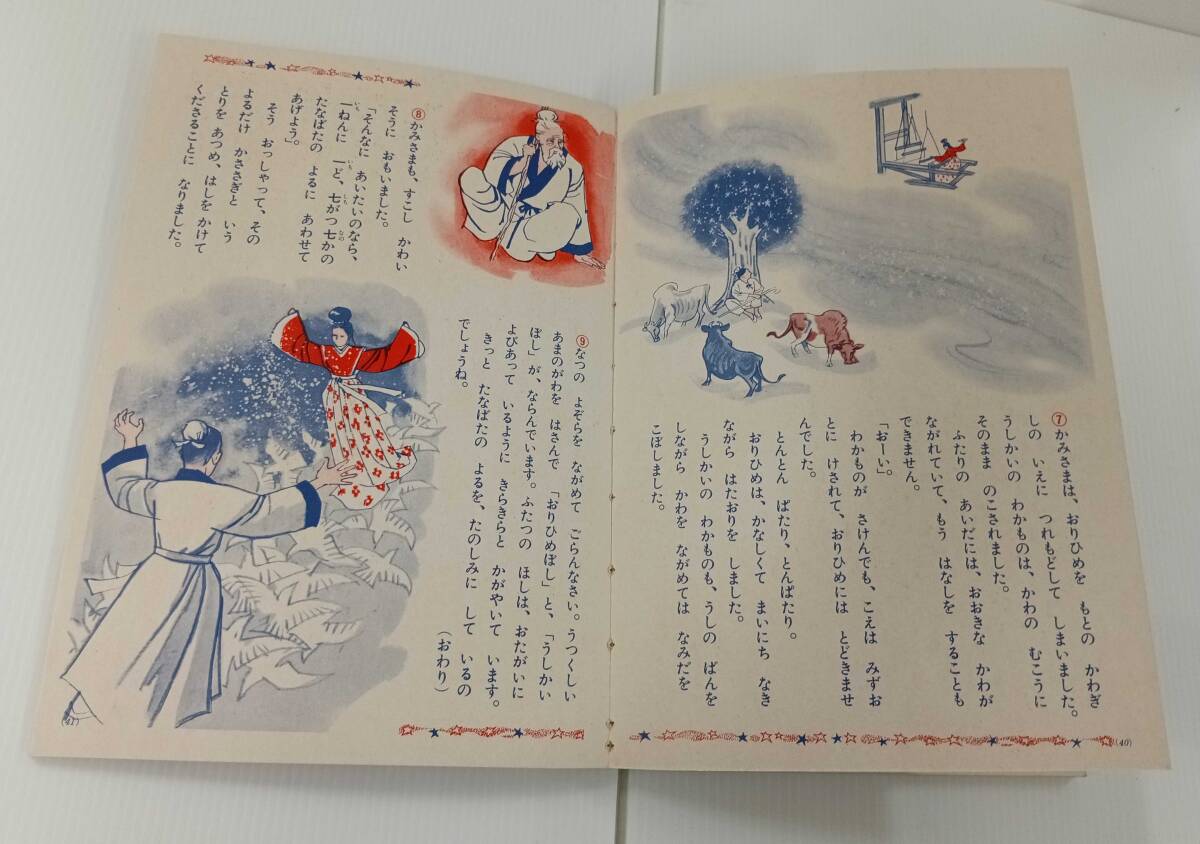 ⑦かみさまは、おりひめを もとの かわぎ
しの いえに つれもどして しまいました。
うしかいの わかものは、かわの むこうに
そのまま のこされました。
ふたりの あいだには、おおきな かわが
ながれていて、もう はなしを することも
できません。
「おーい」。
わかものが さけんでも、こえは みずお
とに けされて、おりひめには とどきませ
んでした。
とんとん ぱたり、とんぱたり。
おりひめは、かなしくて まいにち なき
ながら はたおりを しました。
うしかいの わかものも、うしの ばんを
しながら かわを ながめては なみだを
こぼしました。
(40)
⑧かみさまも、すこし かわい
そうに おもいました。
「そんなに あいたいのなら、
一ねんに 一ど、七がつ七かの
たなばたの よるに あわせて
あげよう」。
そう おっしゃって、その
よるだけ かささぎと いう
とりを あつめ、はしを かけて
くださることに なりました。
⑨なつの よぞらを ながめて ごらんなさい。うつくしい
あまのがわを はさんで 「おりひめぼし」と、「うしかい
ぼし」が、ならんでいます。ふたつの ほしは、おたがいに
よびあって いるように きらきらと かがやいて います。
きっと たなばたの よるを、たのしみに して いるの
でしょうね。
(おわり)
(41)